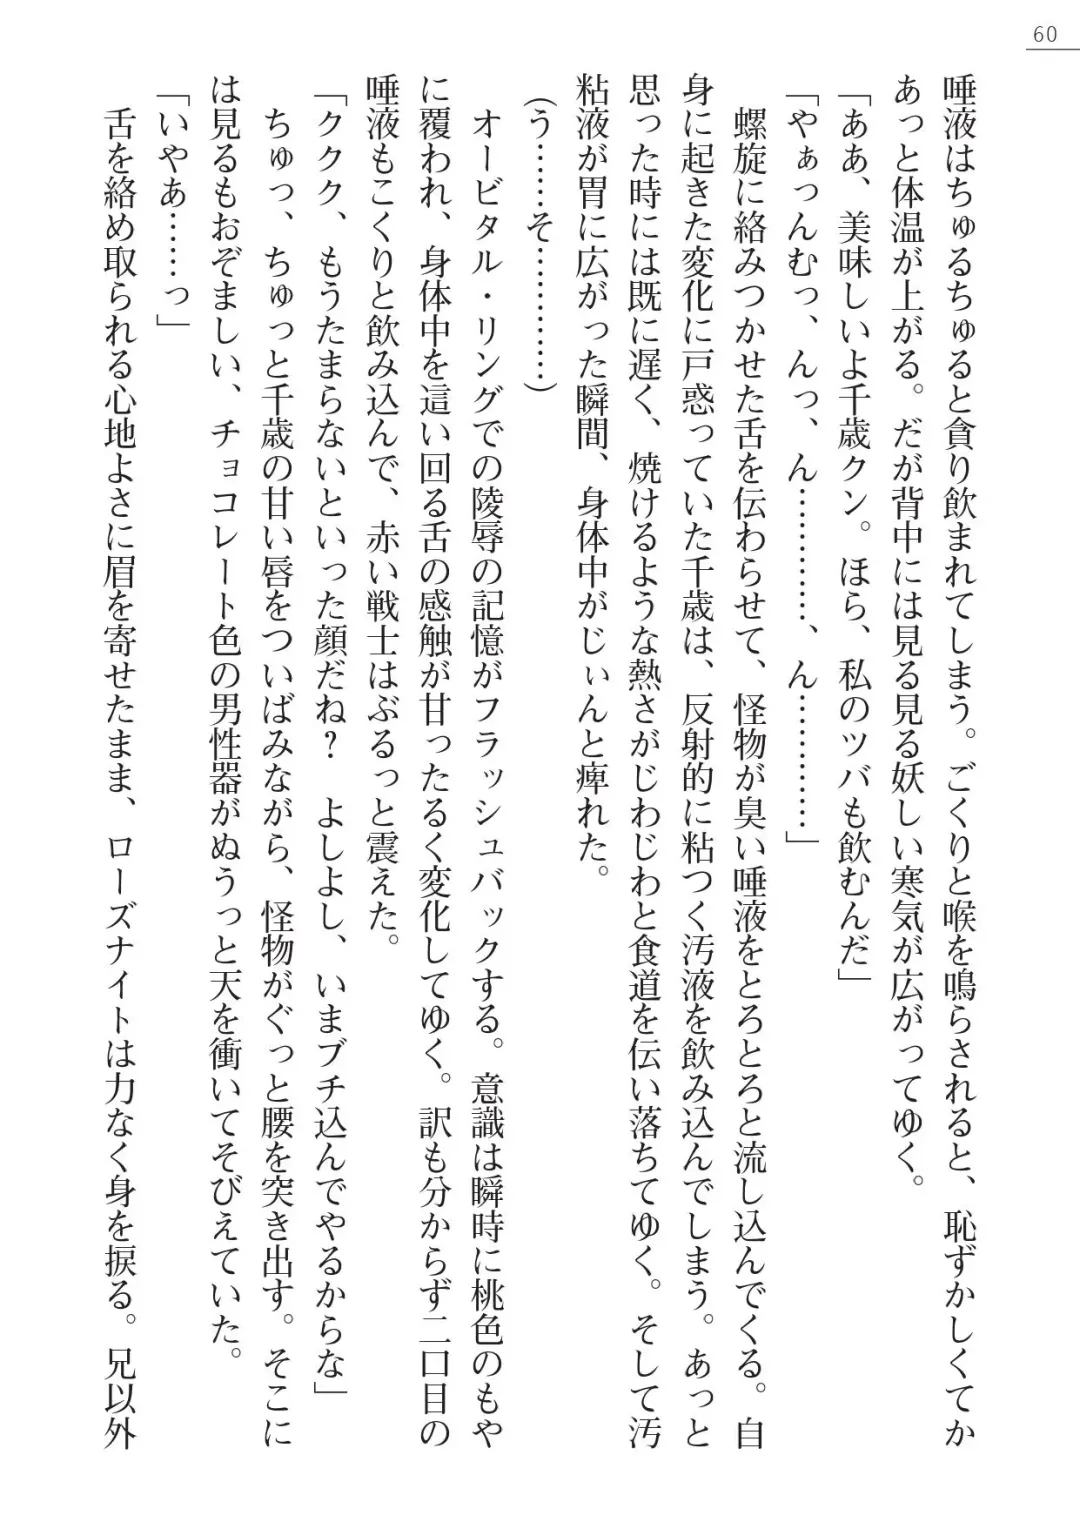 60
唾液はちゅるちゅると貪り飲まれてしまう。ごくりと喉を鳴らされると、恥ずかしくてか
あっと体温が上がる。だが背中には見る見る妖しい寒気が広がってゆく。
「ああ、美味しいよ千歳クン。ほら、私のツバも飲むんだ」
「やぁっんむっ、んっ、ん…………、ん…………」
螺旋に絡みつかせた舌を伝わらせて、怪物が臭い唾液をとろとろと流し込んでくる。自
身に起きた変化に戸惑っていた千歳は、反射的に粘つく汚液を飲み込んでしまう。あっと
思った時には既に遅く、焼けるような熱さがじわじわと食道を伝い落ちてゆく。そして汚
粘液が胃に広がった瞬間、身体中がじぃんと痺れた。
(う……そ…………)
オービタル・リングでの陵辱の記憶がフラッシュバックする。意識は瞬時に桃色のもや
に覆われ、身体中を這い回る舌の感触が甘ったるく変化してゆく。訳も分からず二口目の
唾液もこくりと飲み込んで、赤い戦士はぶるっと震えた。
「ククク、もうたまらないといった顔だね？　よしよし、いまブチ込んでやるからな」
ちゅっ、ちゅっと千歳の甘い唇をついばみながら、怪物がぐっと腰を突き出す。そこに
は見るもおぞましい、チョコレート色の男性器がぬうっと天を衝いてそびえていた。
「いやあ……っ」
舌を絡め取られる心地よさに眉を寄せたまま、ローズナイトは力なく身を捩る。兄以外